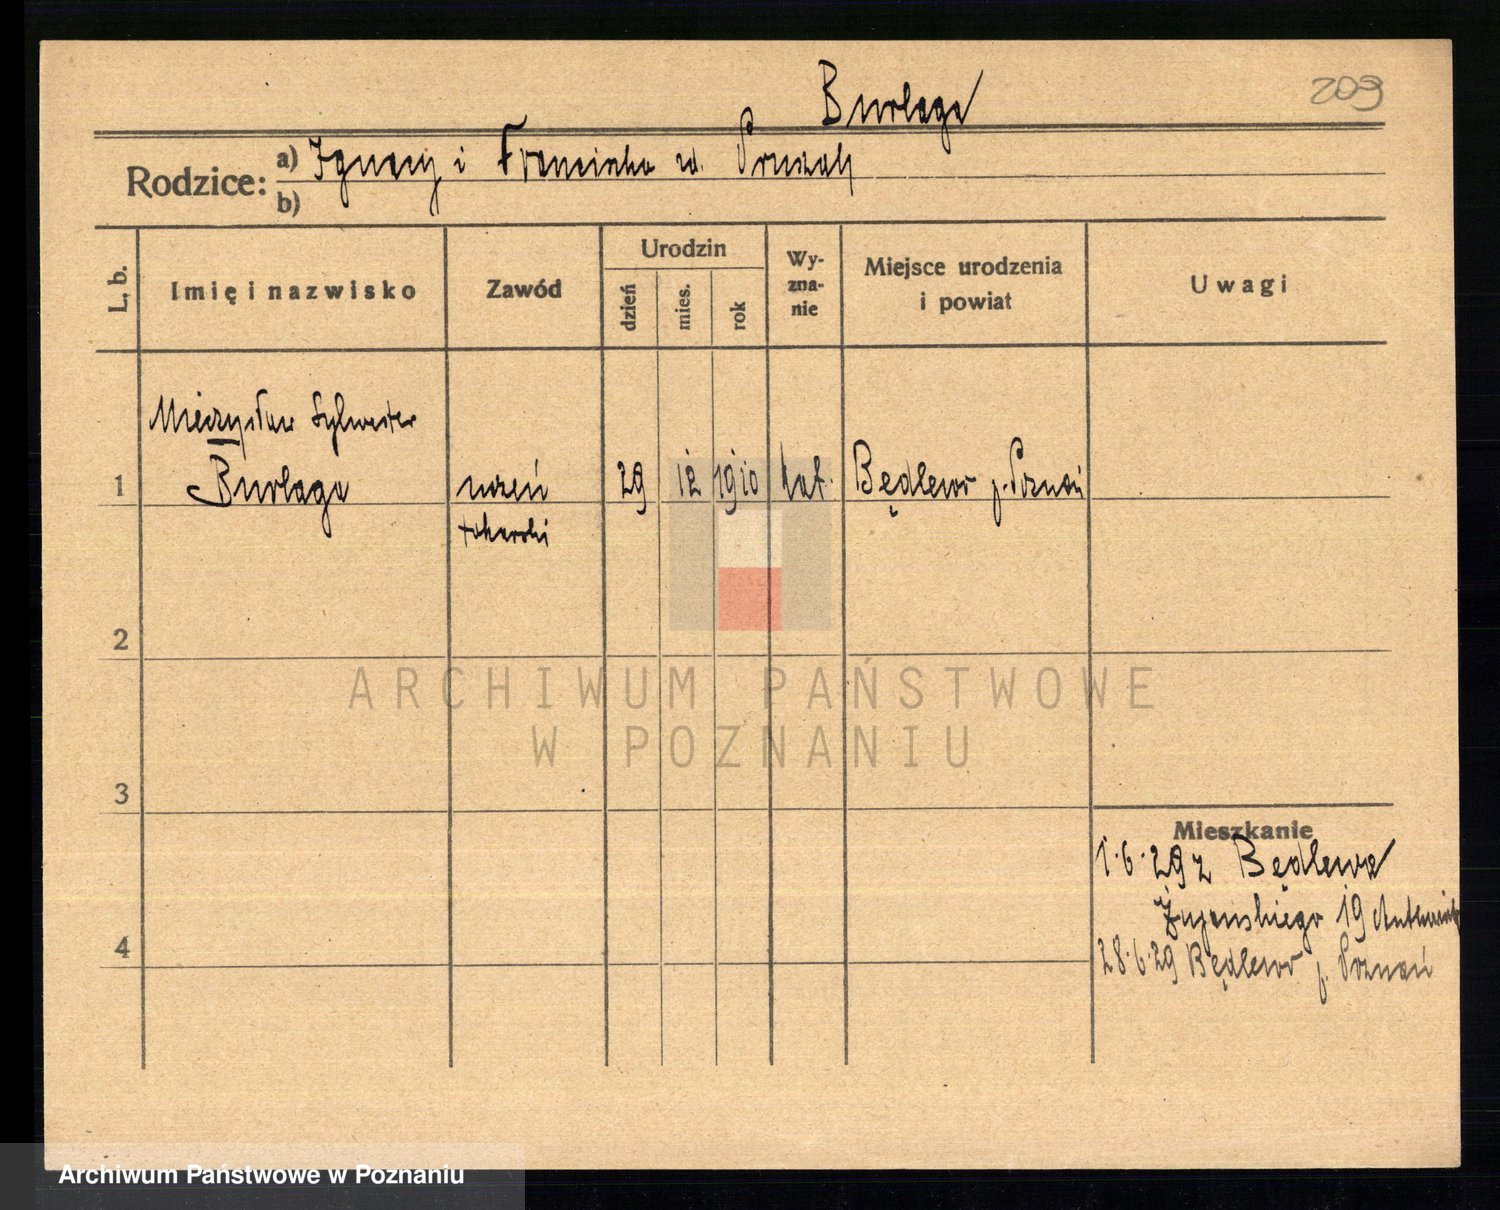 209
Burlaga
Rodzice:
a) Ignacy i Franciszka zd. Pruszak
b)
L. b.
Imię i nazwisko
Zawód
Urodzin
dzień
mies.
rok
Wy-
zna-
nie
Miejsce urodzenia
i powiat
Uwagi
Mieczysław Sylwester
1 Burlaga uczeń 29 12 1910 kat. Będlewo p. Poznań
tokarski
2
ARCHIWUM PAŃSTWOWE
W POZNANIU
3
Mieszkanie
1.6.29 z Będlewa
19
4
28.6.29 Będlewo p. Poznań
Archiwum Państwowe w Poznaniu